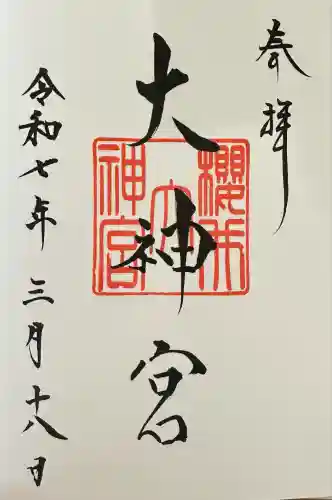 奉拝
大神宮
櫻木
大
神宮
令和七年三月十八日